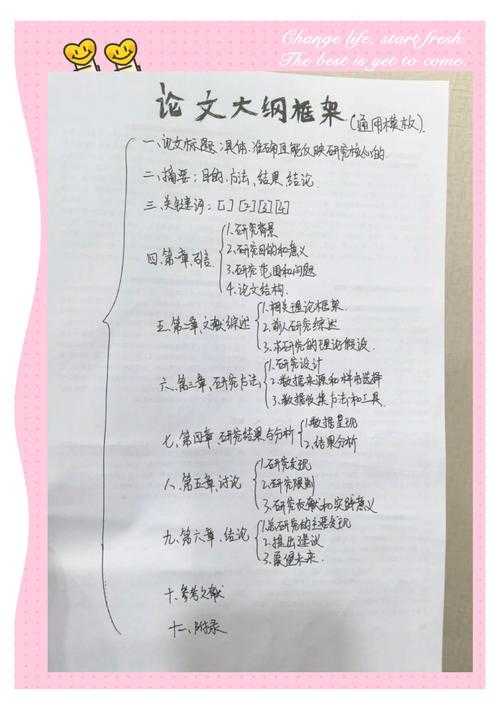 Change life, start fresh
The best is yet to come.
论文大纲框架(通用模板).
一、论文标题:具体、准确且能反映研究核心的.
二、摘要:目的、方法、结果、结论
三、关键词:[1][2][3][4]
四.第一章.引言
1.研究背景
2.研究目的和意义
3.研究范围和问题
4.论文结构.
五.第二章.文献综述
1.相关理论框架.
2.前人研究综述
3.本研究的理论假设.
六.第三章.研究方法
1.研究设计
2.数据来源和样本选择
3.数据收集方法和工具.
七.第四章.研究结果与分析
1.数据呈现
2.结果分析
八.第五章.讨论
1.研究发现
2.研究限制
3.研究贡献和实践意义
九.第六章.结论
1.总研究的主要发现
2.提出建议
3.展望未来.
十.参考文献
十一.附录